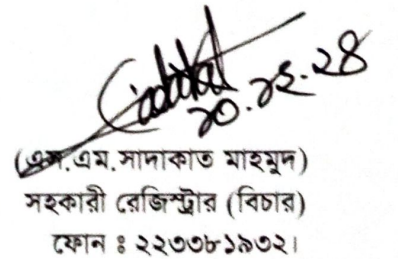 ২০.১২.২৪
(এস.এম.সাদাকাত মাহমুদ)
সহকারী রেজিস্ট্রার (বিচার)
ফোন ঃ ২২৩৩৮১৯৩২।